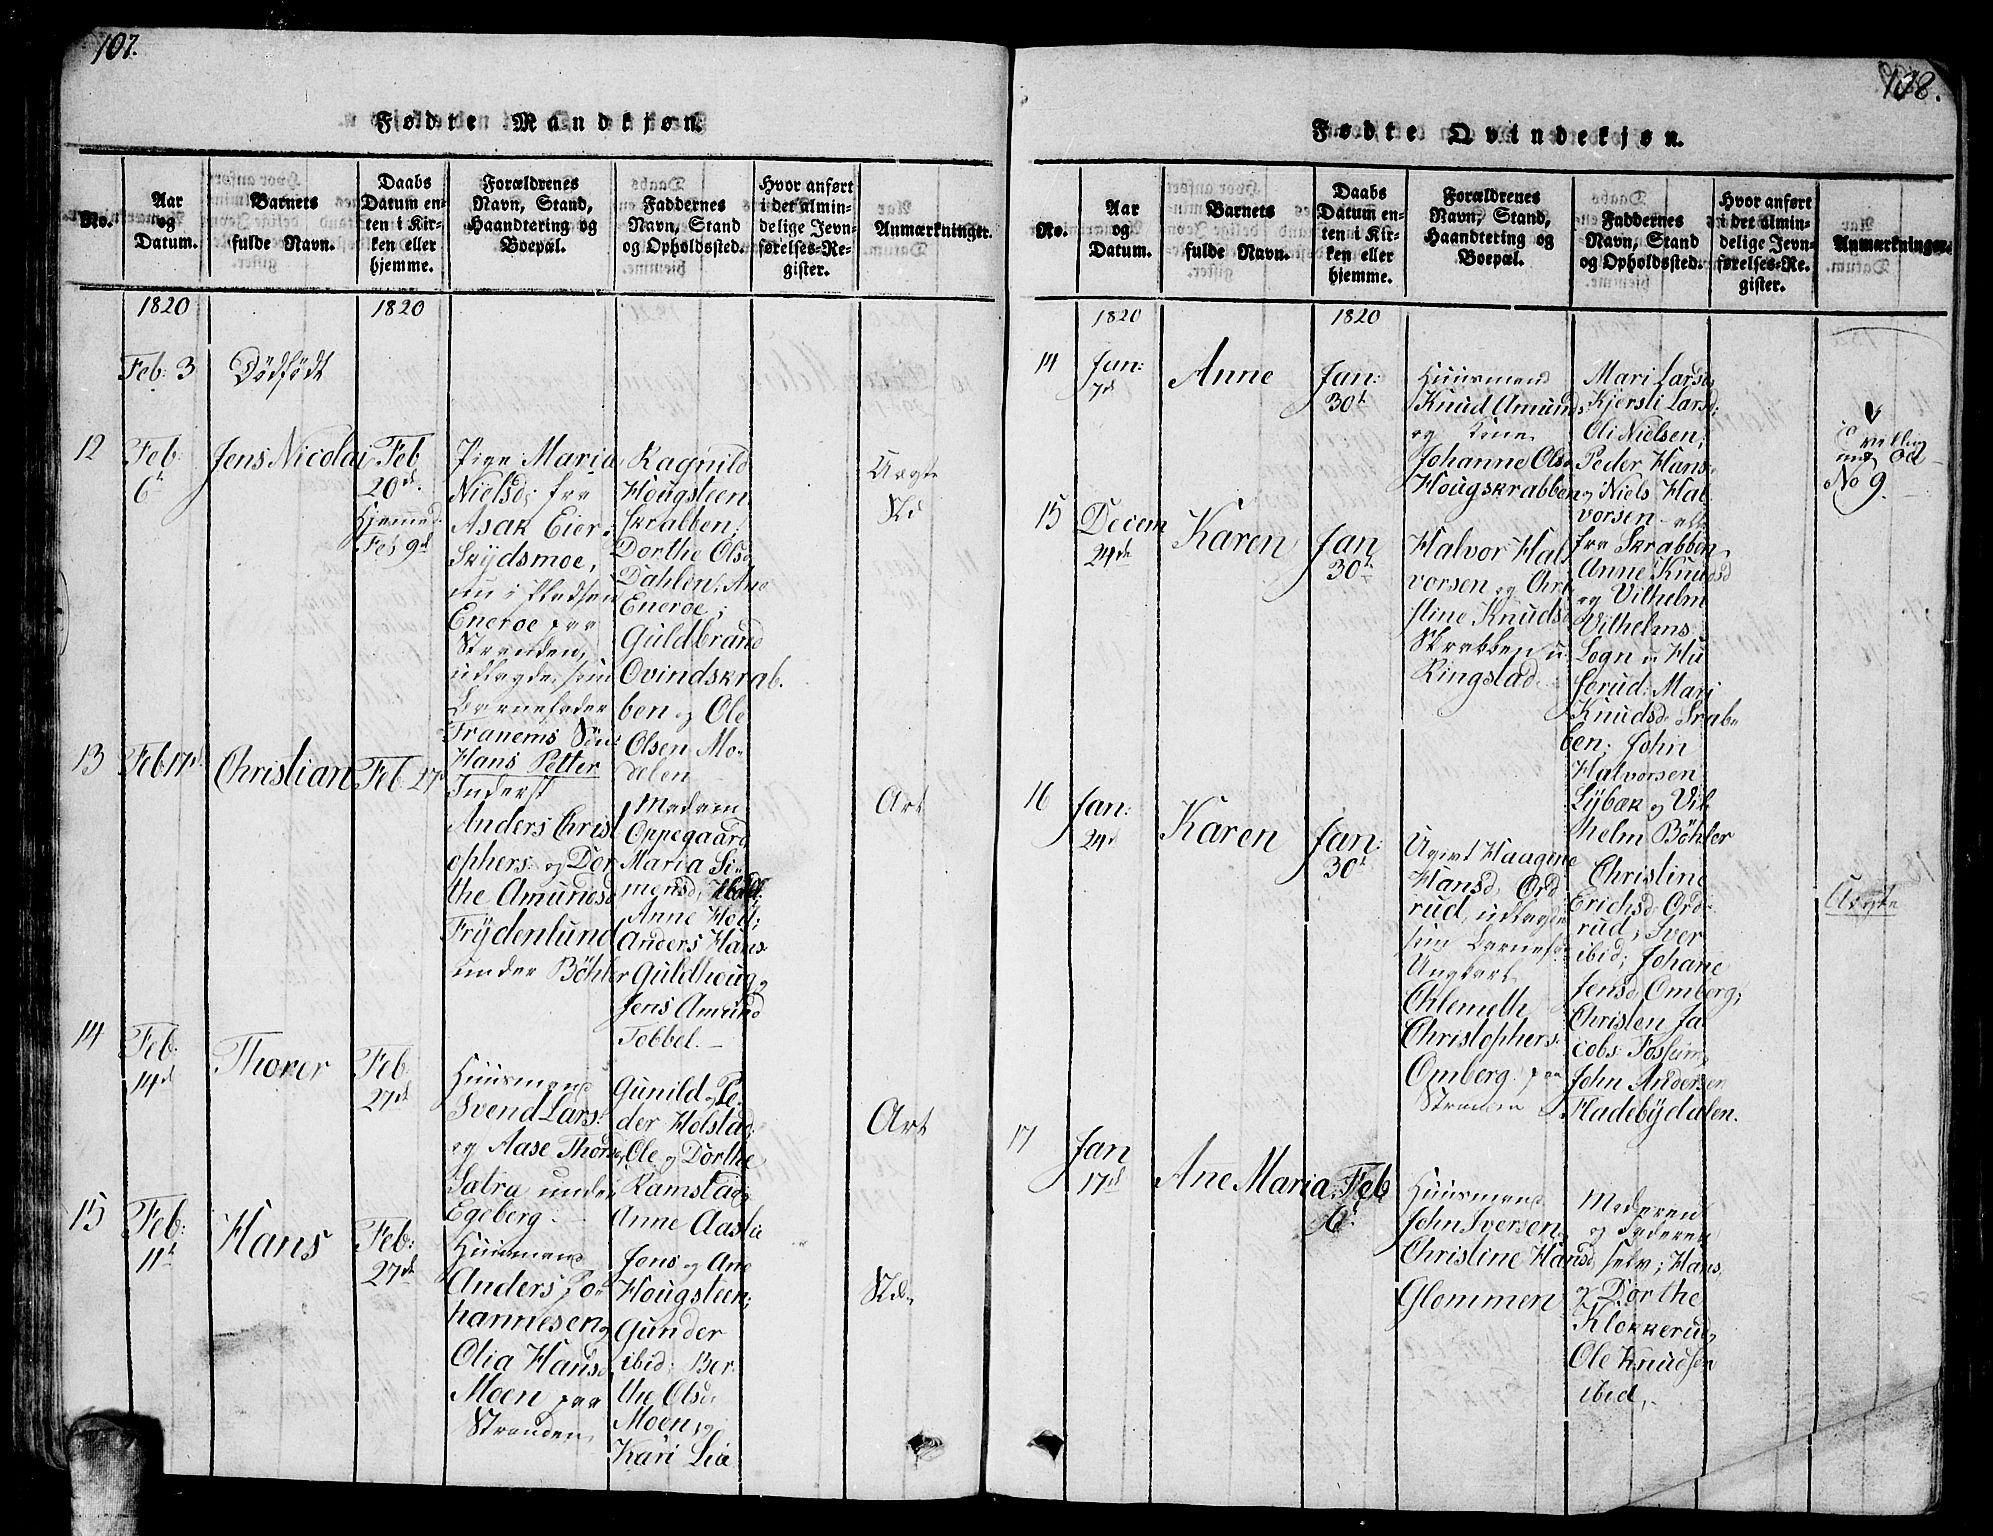 107.
Fødte Mandkjøn.
No.
Aar
og
Datum.
Barnets
fulde Navn.
Daabs
Datum en-
ten i Kir-
ken eller
hjemme.
Forældrenes
Navn, Stand,
Haandtering og
Boepæl.
Faddernes
Navn, Stand
og Opholdssted.
Hvor anført
i det almin-
delige Jevn-
førelses-Re-
gister.
Anmærkninger.
1820
1820
Feb: 3
Dödfödt
12
Feb:
6t
Jens Nicolai
Feb
20d.
Hjemmed.
Feb 9d
Pige Maria
Nielsd: fra
Asak Eier
Skydsmoe,
nu i Pladsen
Eneroe paa
Stranden,
udlagde som
Barnefader
Hans Petter
Ragnild
Hougsteen
Skrabben;
Dorthe Olsd
Dahlen; Ane
Eneroe;
Guldbrand
Ovindskrab.
ben og Ole
Olsen Mo-
delen
Uægte
Sk
13
Feb 17d.
Christian
Feb 27d
Inderst
Anders Christ
ophers: og Dor
the Amundsd
Frydenlund
under Böhler
Madam
Oppegaard
Maria Si-
mensd,
Anne Hod;
Anders Hans
Guldhoug og
Jens Amund
Tobbel.
Art
14
Feb:
14d
Thorer
Feb:
27d
Huusmand
Svend Lars:
og Aase Thors
Satra under
Egeberg.
Gunild og Pe-
der Holstad;
Ole og Dorthe
Ramstad
Anne Aaslia
Art
15
Feb:
11t
Hans
Feb:
27d
Huusmand
Anders Jo-
hannesen og
Olia Hansd
Moen paa
Stranden
Jens og Ane
Hougsteen;
Gunder
ibid; Ber
the Olsd
Moen, og
Kari Lia
Sk.
108.
Fødte Qvindekjøn.
No.
Aar
og
Datum.
Barnets
fulde Navn.
Daabs
Datum en-
ten i Kir-
ken eller
hjemme.
Forældrenes
Navn, Stand,
Haandtering og
Boepæl.
Faddernes
Navn, Stand
og Opholdssted.
Hvor anført
i det almin-
delige Jevn-
førelses-Re-
gister.
Anmærkninger.
1820
1820
14
Jan:
7d
Anne
Jan:
30t
Huusmand
Knud Amunds
og Kone
Johanne Olsd
Hougskrabben
Mari Larsd,
Kjersti Larsd;
Oli Nielsen,
Peder Hans
og Niels Hal
vorsen alle
fra Skrabben
No 9.
15
Decem
24de
Karen
Jan
30t
Halvor Hal
vorsen og Chri
stine Knudsd
Skrabben u
Ringstad
Anne Knudsd
og Vilhelm
Vilhelms
Sogn u Hu
serud; Mari
Knudsd Srab
ben; John
Halvorsen
Lybæk og Vil
helm Böhler
16
Jan:
24d
Karen
Jan:
30t
Ugivt Haagine
Hansd, Ord
rud, udlagde
som Barnefa
Ungkarl
Chlemeth
Christophers:
Omberg paa
Stranden
Christine
Erichsd Ord-
rud; Iver
ibid; Johane
Jensd, Omberg;
Christen Ja-
cobs: Fossum;
John Andersen
Hadebydalen.
Uægte
17
Jan
17d
Ane Maria
Feb
6t
Huusmand
John Iversen
Christine Hansd
Glommen
Moderen
og Faderen
selv; Hans
og Dorthe
Klokkerud,
Ole Knudsen
ibid,